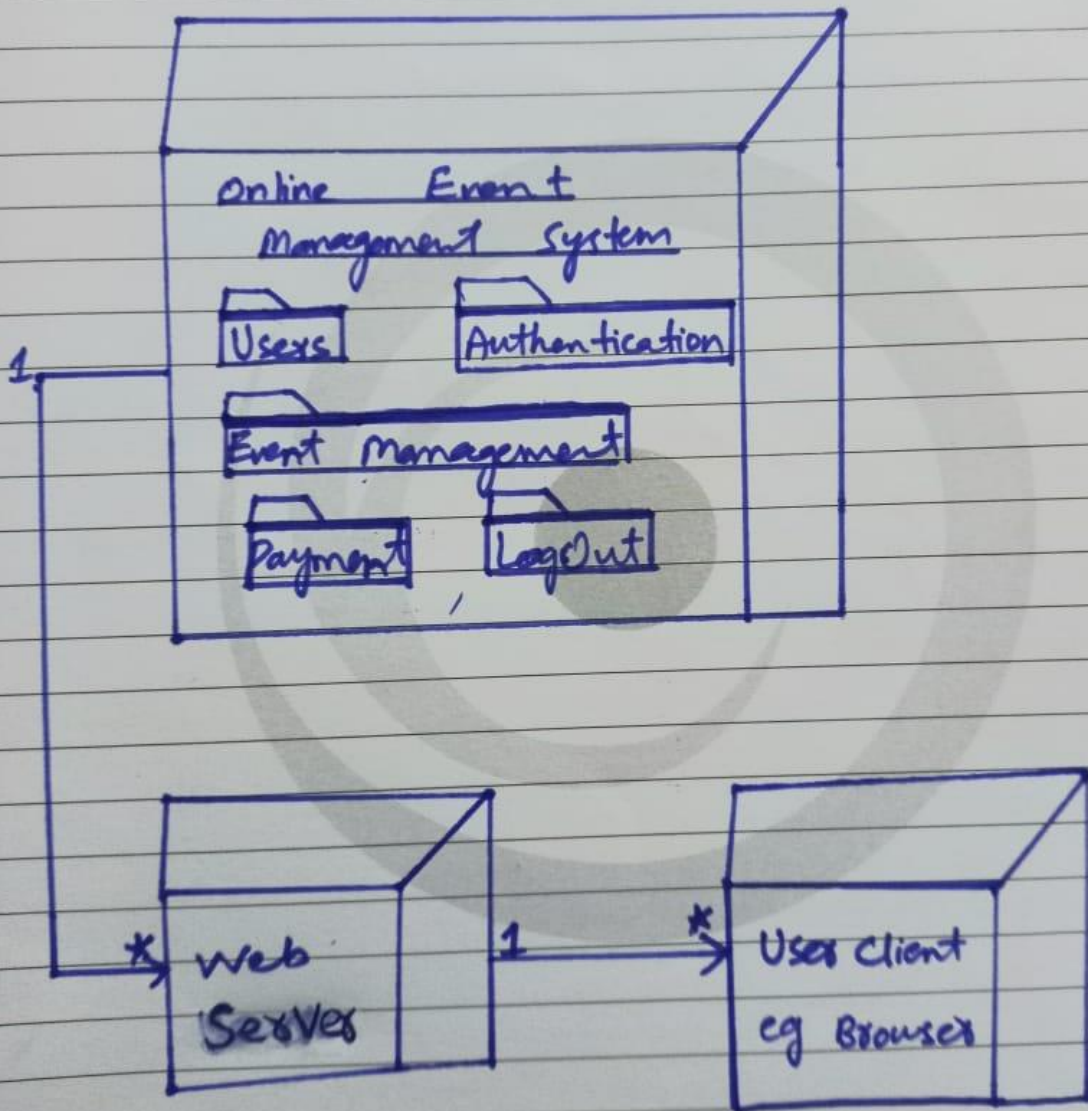 Online Event
Management System
Users
Authentication
1
Event Management
Payment
LogOut
*
Web
Server
1
*
User Client
eg Browser